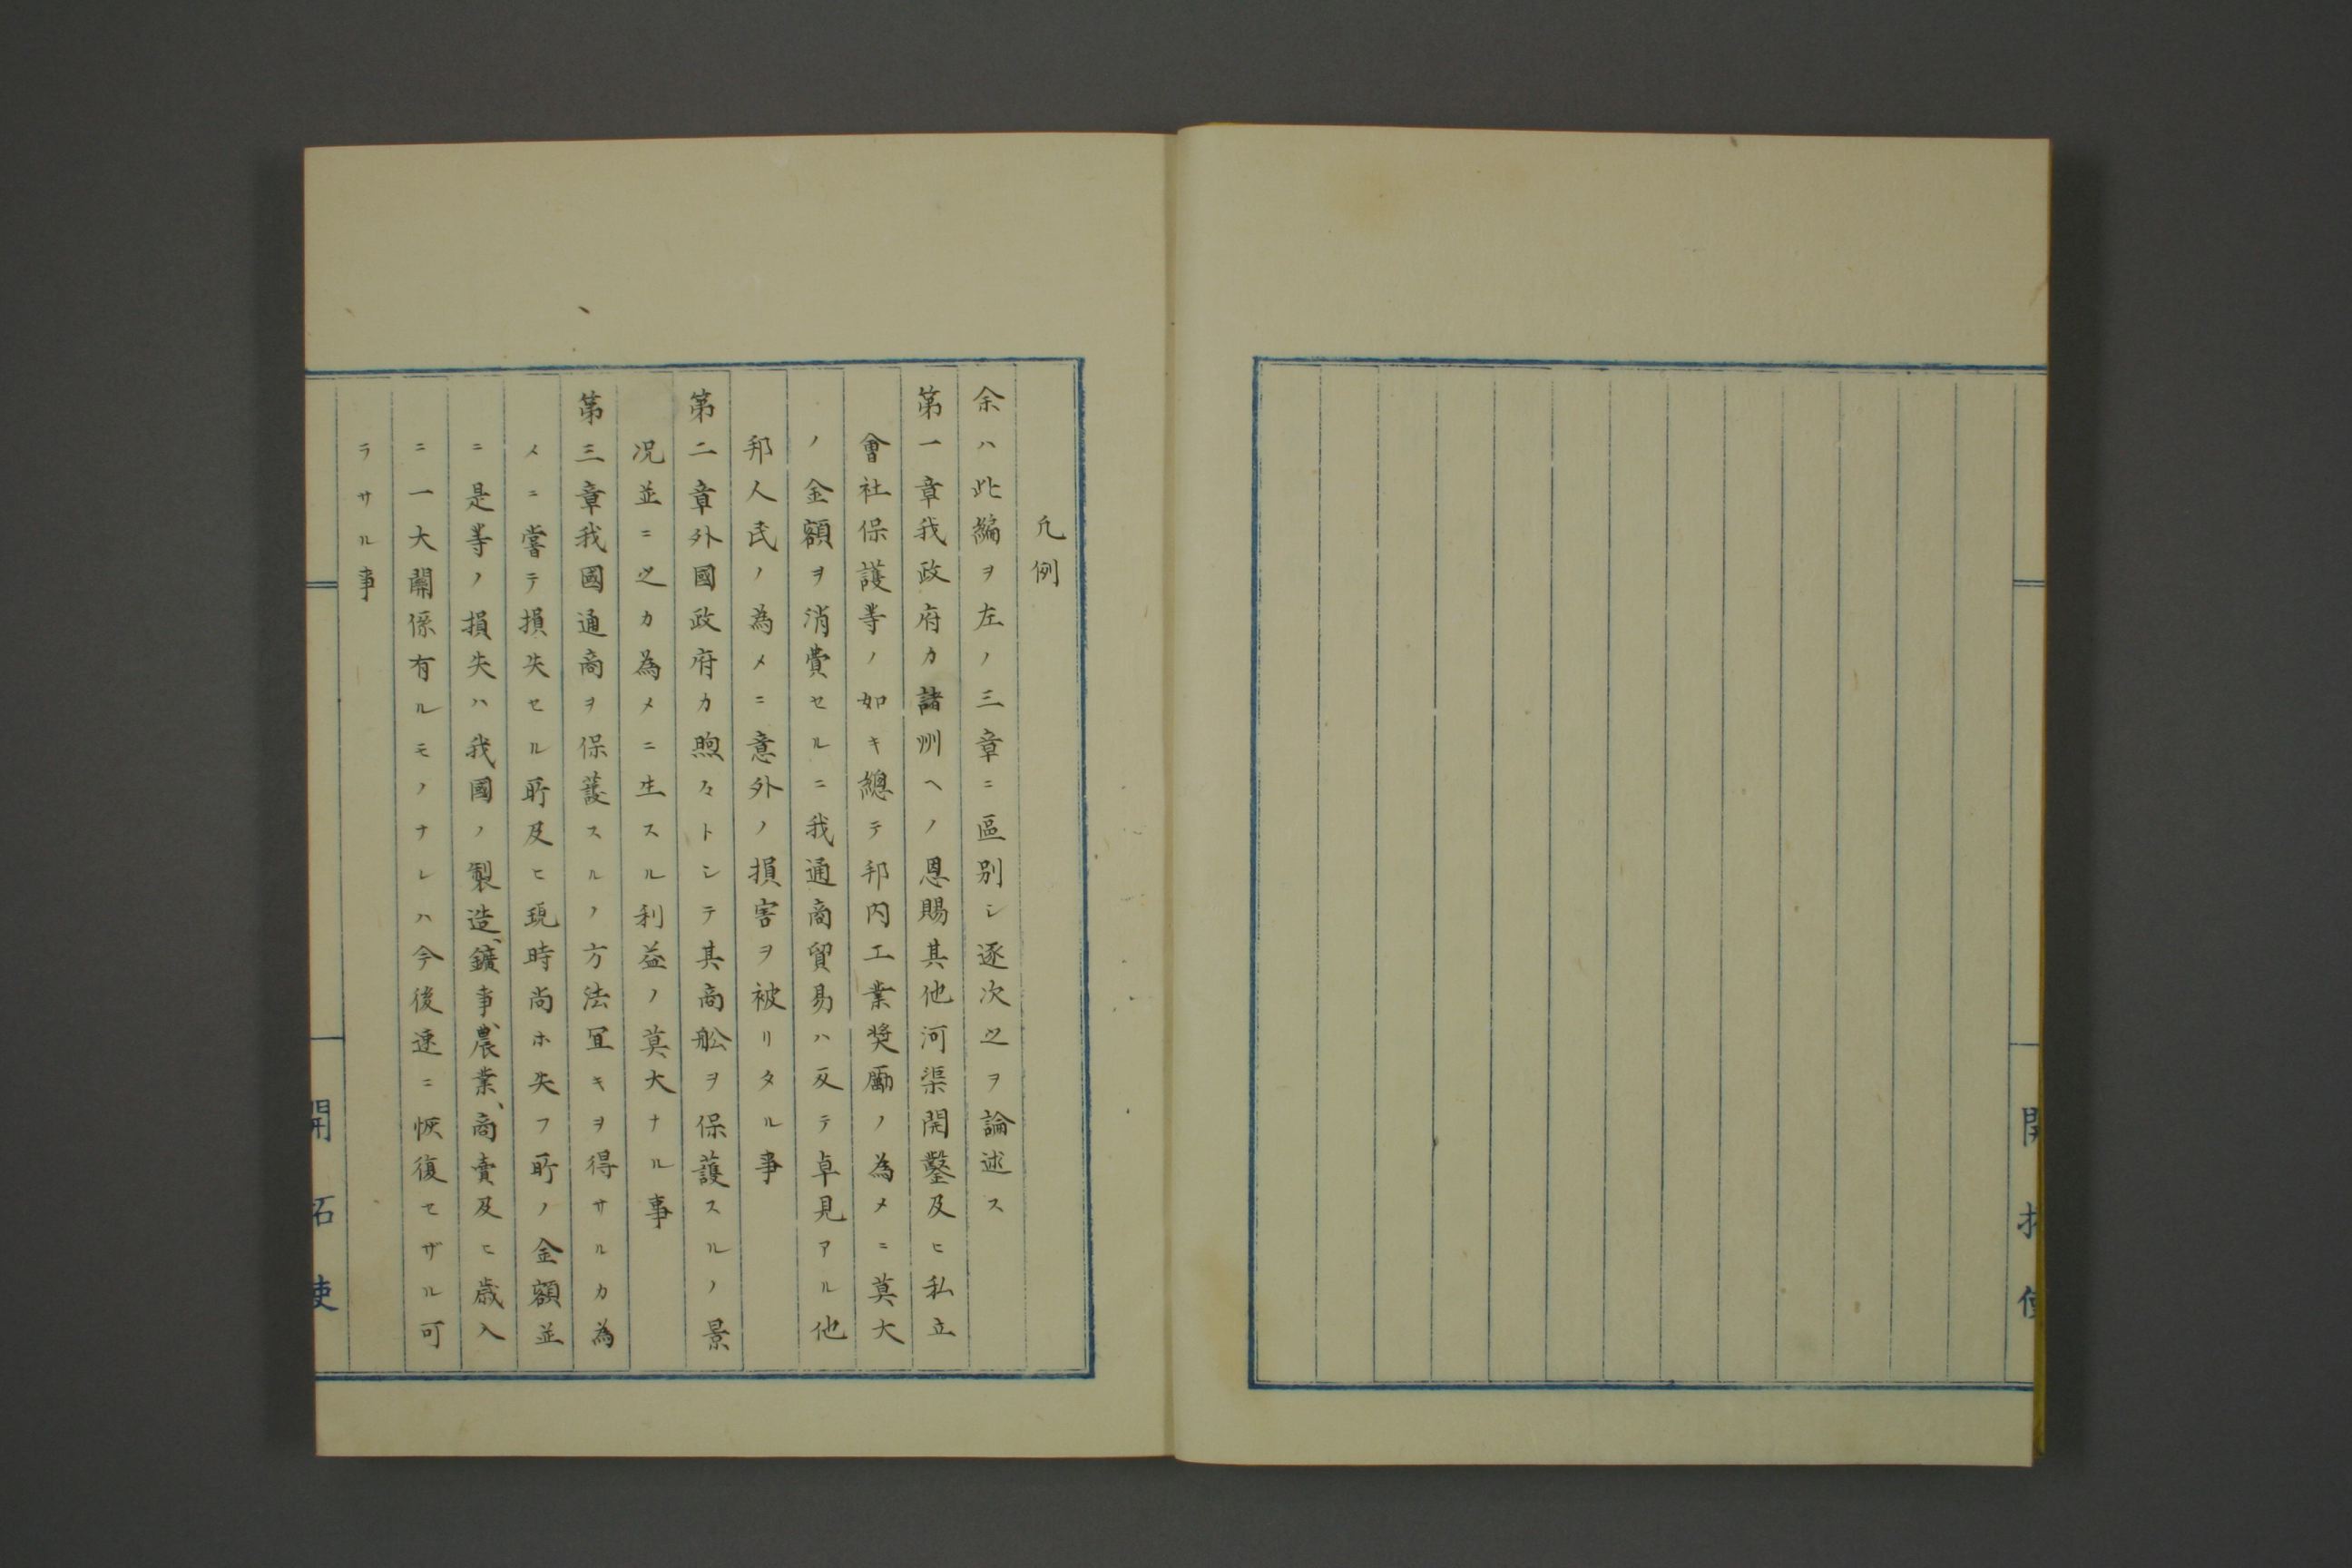 開拓使
凡例
余ハ此編ヲ左ノ三章ニ區別シ逐次之ヲ論述ス
第一章我政府カ諸州ヘノ恩賜其他河渠開鑿及ヒ私立
會社保護等ノ如キ總テ邦内工業奬勵ノ為メニ莫大
ノ金額ヲ消費セルニ我通商貿易ハ反テ卓見アル他
邦人民ノ為メニ意外ノ損害ヲ被リタル事
第二章外國政府カ煦々トシテ其商舩ヲ保護スルノ景
況並ニ之カ為メニ生スル利益ノ莫大ナル事
第三章我國通商ヲ保護スルノ方法冝キヲ得サルカ為
メニ嘗テ損失セル所及ヒ現時尚ホ失フ所ノ金額並
ニ是等ノ損失ハ我國ノ製造、鑛事、農業、商賣及ヒ歳入
ニ一大關係有ルモノナレハ今後速ニ恢復セザル可
ラサル事
開拓使